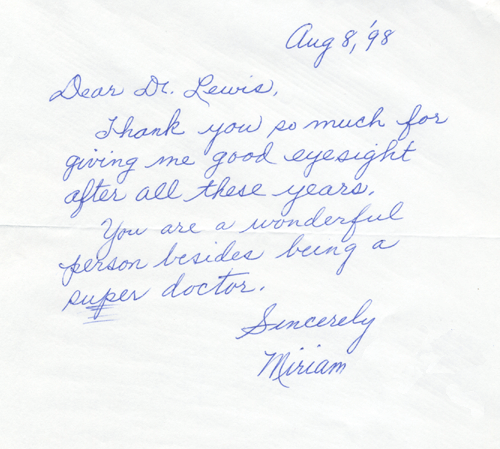 Aug 8, '98
Dear Dr. Lewis,
Thank you so much for
giving me good eyesight
after all these years.
You are a wonderful
person besides being a
super doctor.
Sincerely
Miriam